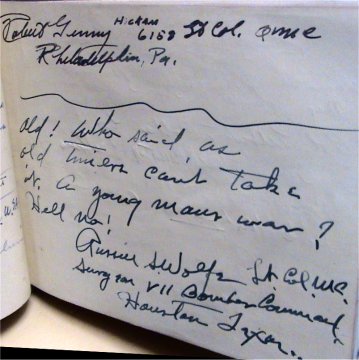 Robert Genny Hiram 6158 Lt Col. QMC
Philadelphia, Pa.
Old! Who said, as
old timers cant take
it. A young mans war?
Hell no!
S Wolfe Lt. Col. M.C.
Surgeon VII Bomber Command
Houston Texas...